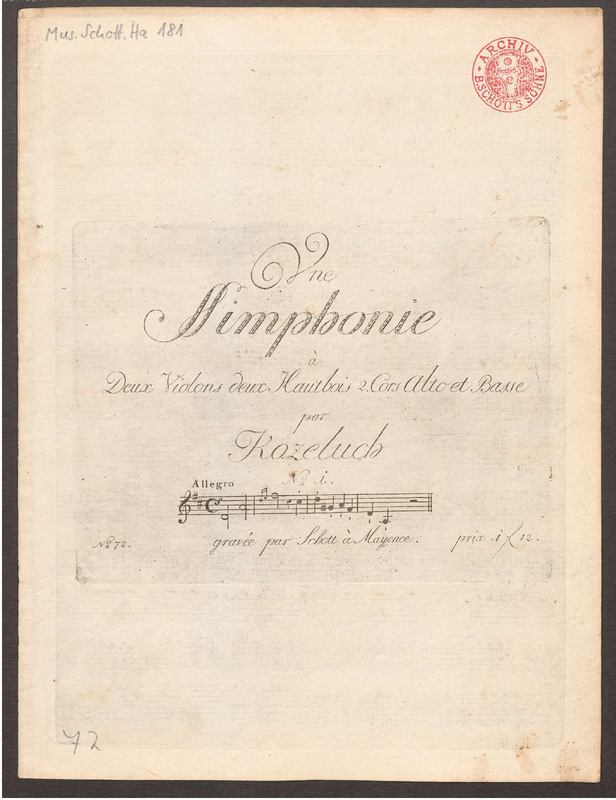 Mus. Schott. Ha 181
ARCHIV
B. SCHOTT'S SÖHNE
Une
Simphonie
à
Deux Violons deux Hautbois 2. Cors Alto et Basse
par
Kozeluch
No. 1.
Allegro
No. 72.
gravée par Schott à Mayence.
prix 1 f 12.
72